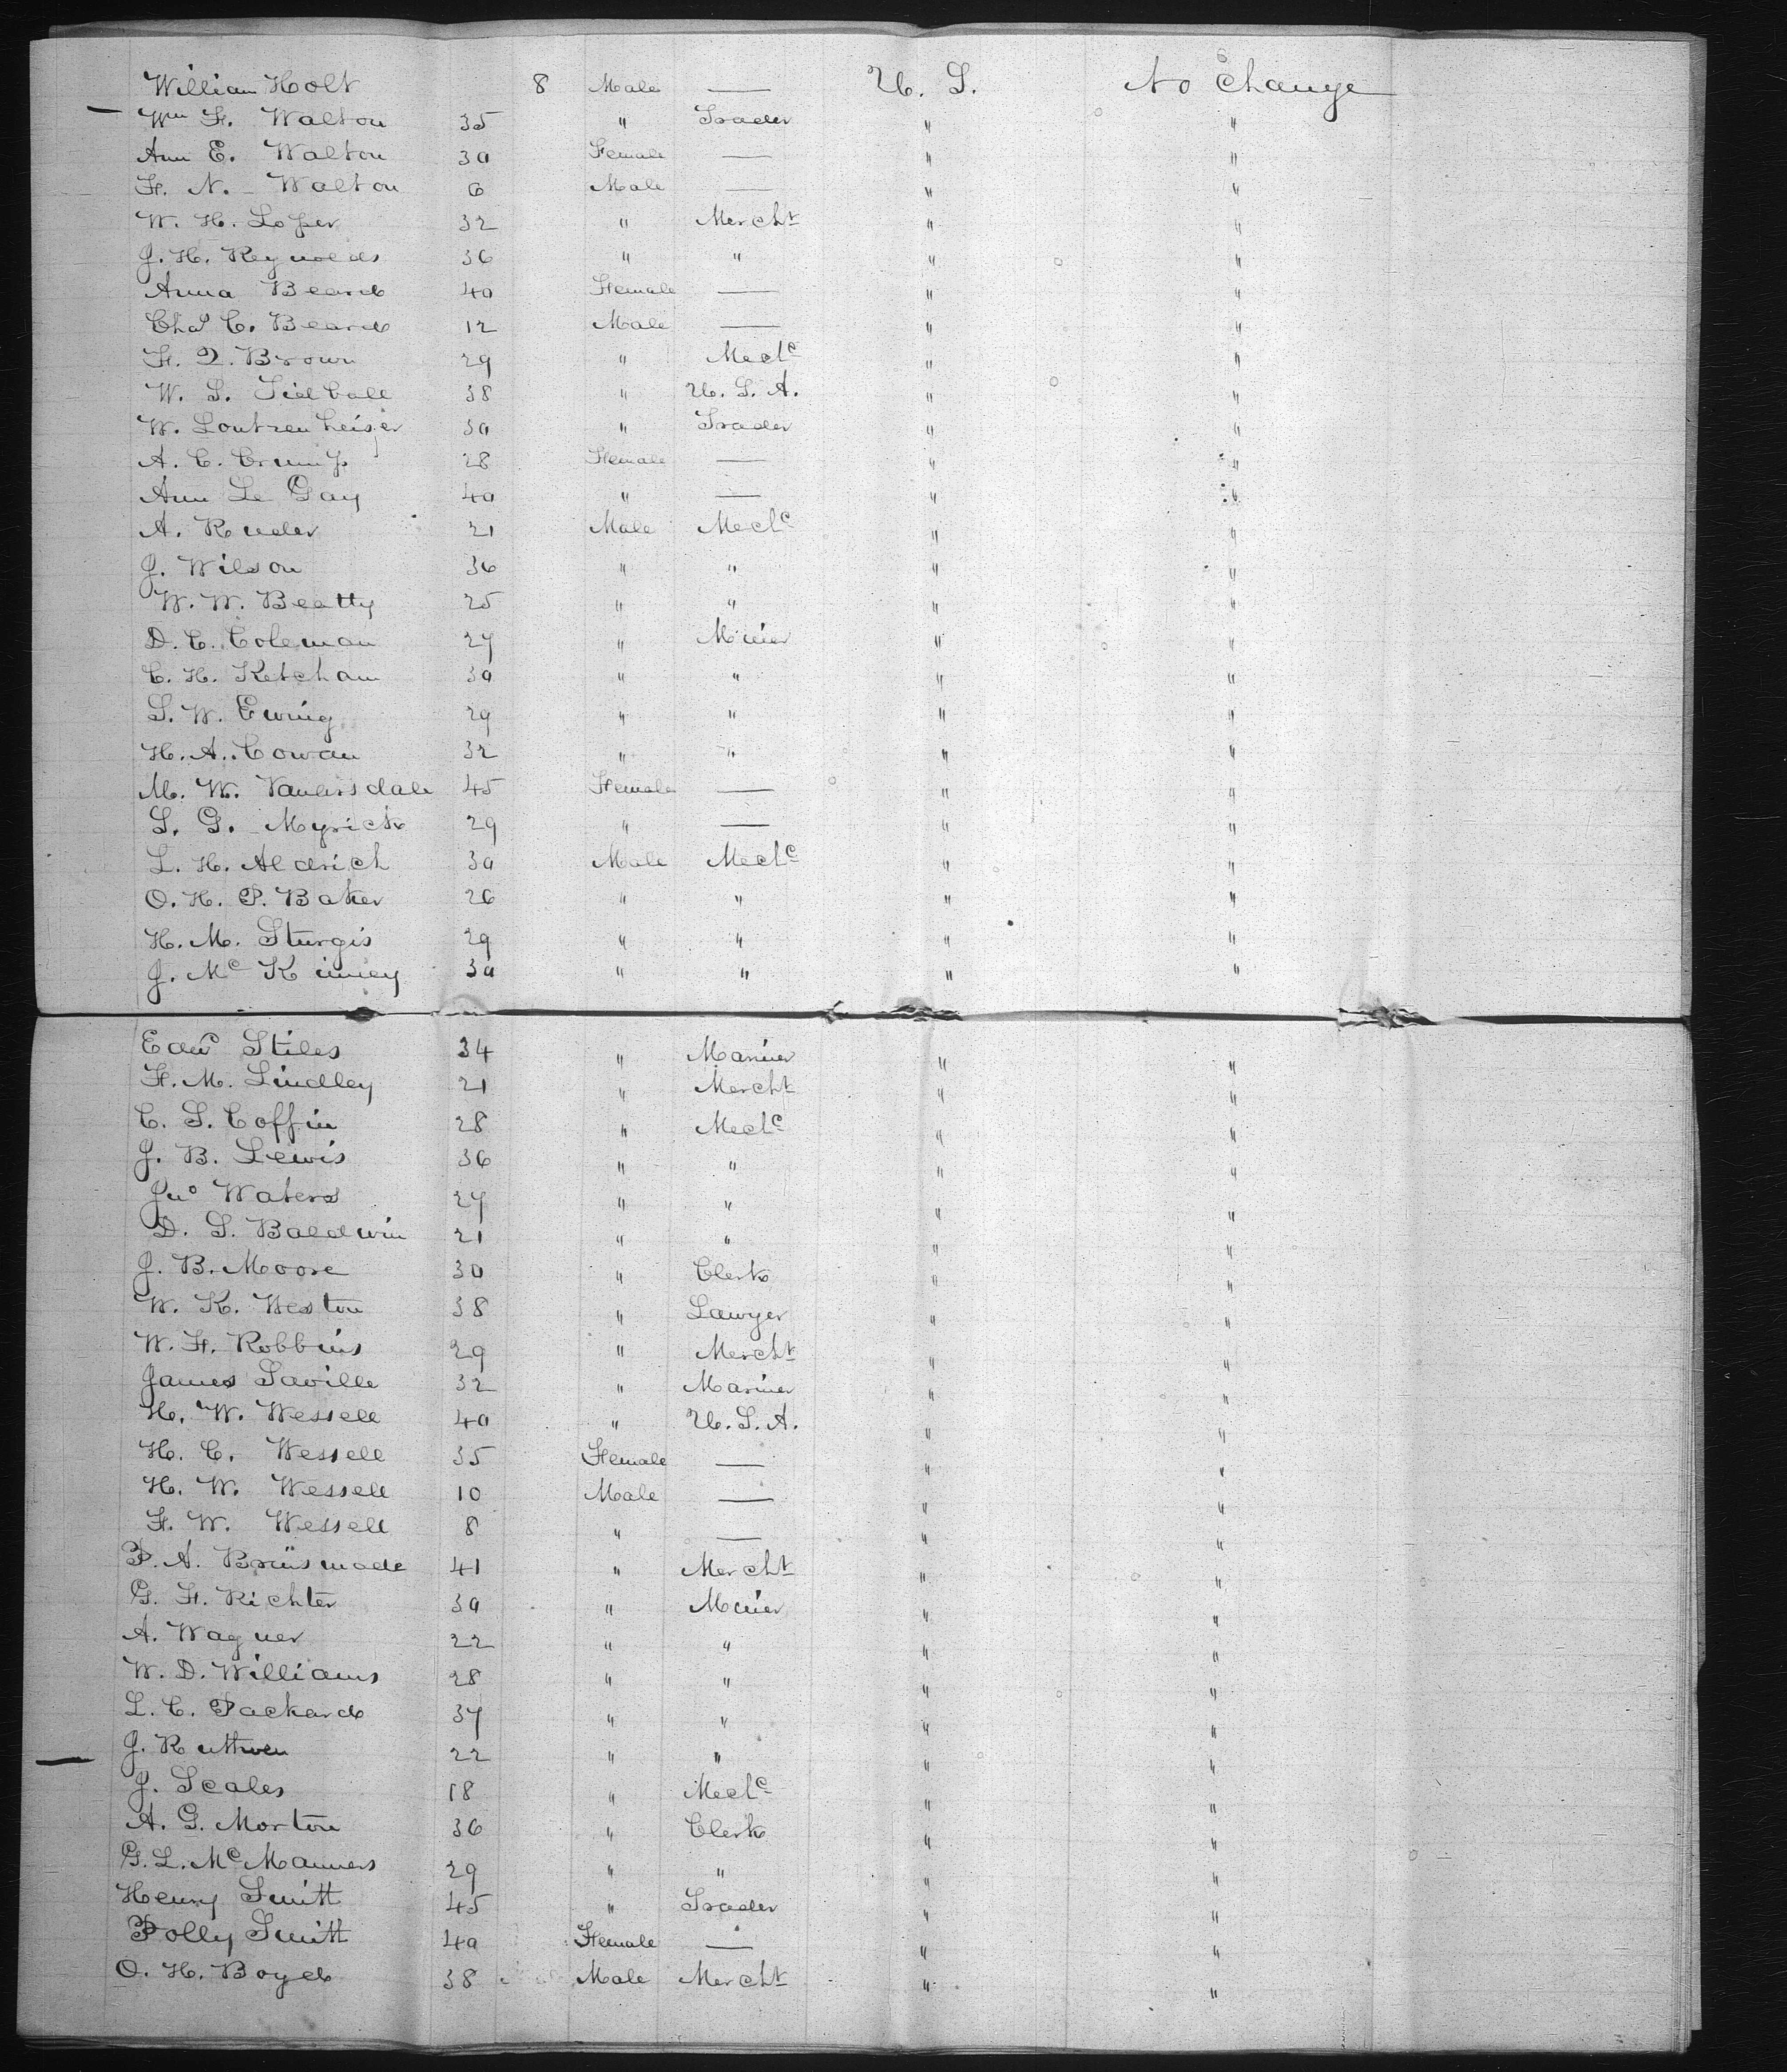 William Holt 8 Male — U. S. No Change
Wm F. Walton 35 " Trader " "
Ann E. Walton 30 Female — " "
F. N. Walton 6 Male — " "
W. H. Loper 32 " Mercht " "
J. H. Reynolds 36 " " " "
Anna Beard 40 Female — " "
Chas C. Beard 12 Male — " "
F. Q. Brown 29 " Mechc " "
W. S. Tidball 38 " U. S. A. " "
W. Loutzenheiser 30 " Trader " "
A. C. Crump 28 Female — " "
Ann Le Gay 40 " — " "
A. Ruder 21 Male Mechc " "
J. Wilson 36 " " " "
W. W. Beatty 25 " " " "
D. C. Coleman 27 " Miner " "
C. H. Ketcham 30 " " " "
S. W. Ewing 29 " " " "
H. A. Cowan 32 " " " "
M. W. Vanarsdale 45 Female — " "
S. G. Myrick 29 " — " "
L. H. Aldrich 30 Male Mechc " "
O. H. P. Baker 26 " " " "
H. M. Sturgis 29 " " " "
J. Mc Kinney 30 " " " "
Edwd Stiles 34 " Mariner " "
F. M. Lindley 21 " Mercht " "
C. S. Coffin 28 " Mechc " "
J. B. Lewis 36 " " " "
Jno Waters 27 " " " "
D. S. Baldwin 21 " " " "
J. B. Moore 30 " Clerk " "
W. K. Weston 38 " Lawyer " "
W. F. Robbins 29 " Mercht " "
James Saville 32 " Mariner " "
H. W. Wessell 40 " U. S. A. " "
H. C. Wessell 35 Female — " "
H. W. Wessell 10 Male — " "
F. W. Wessell 8 " — " "
P. A. Brinsmade 41 " Mercht " "
G. F. Richter 30 " Miner " "
A. Wagner 22 " " " "
W. D. Williams 28 " " " "
L. C. Packard 37 " " " "
J. Ruthven 22 " " " "
J. Scales 18 " Mechc " "
A. G. Morton 36 " Clerk " "
G. L. Mc Manners 29 " " " "
Henry Smith 45 " Trader " "
Polly Smith 40 Female — " "
O. H. Boyd 38 Male Mercht " "